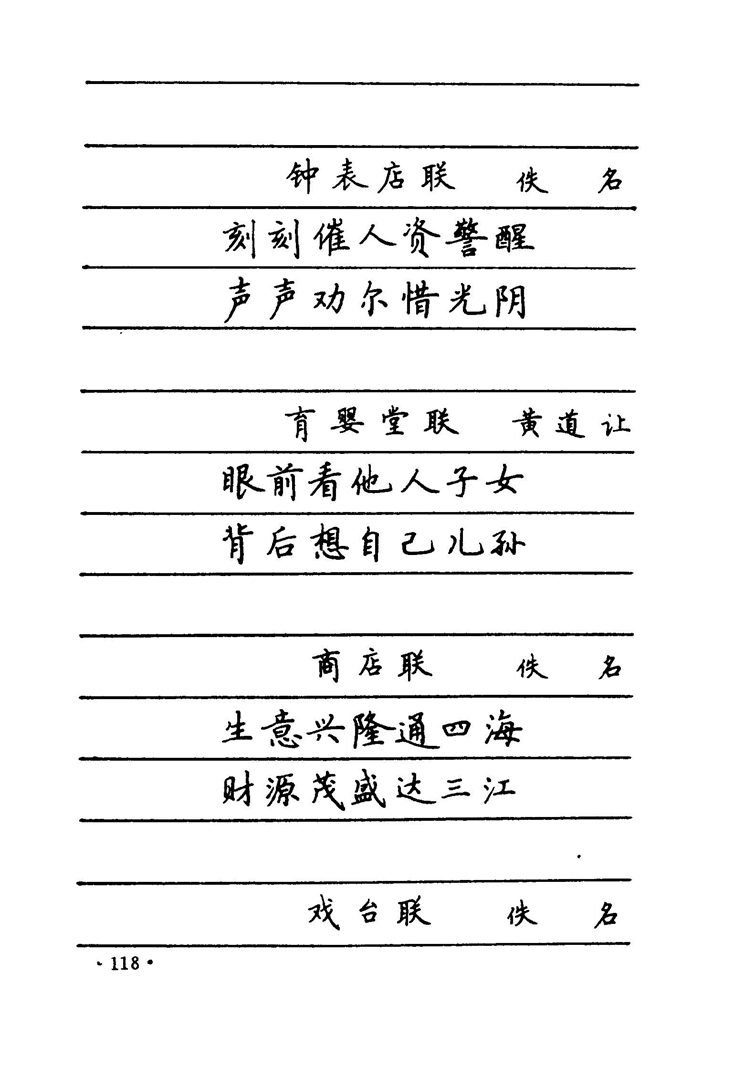 钟表店联 佚名
刻刻催人资警醒
声声劝尔惜光阴
育婴堂联 黄道让
眼前看他人子女
背后想自己儿孙
商店联 佚名
生意兴隆通四海
财源茂盛达三江
戏台联 佚名
·118·